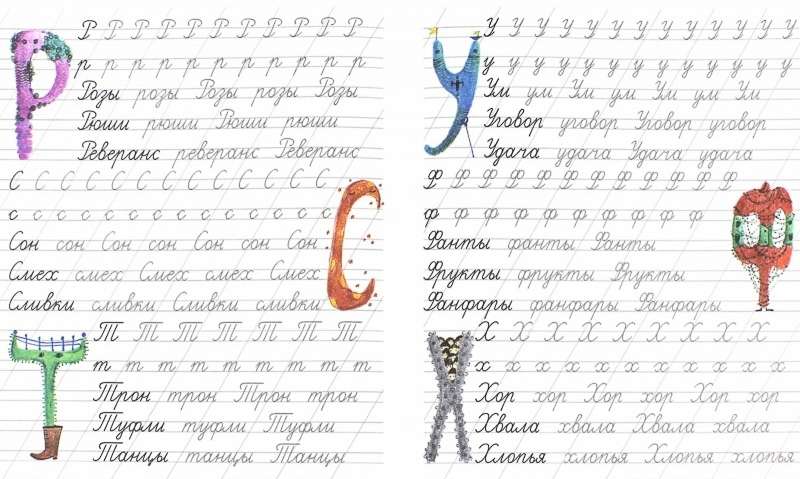 Р
Р Р Р Р Р Р Р Р Р Р Р
р р р р р р р р р р р
Розы розы Розы розы Розы
Рюши рюши Рюши рюши
Реверанс реверанс Реверанс
С
С С С С С С С С С С С С С
с с с с с с с с с с с с с
Сон сон Сон сон Сон сон Сон
Смех смех Смех смех Смех
Сливки сливки Сливки сливки
Т
Т Т Т Т Т Т Т
т т т т т т т т т
Трон трон Трон трон
Туфли туфли Туфли
Танцы танцы Танцы
У
У У У У У У У У У У У У У
у у у у у у у у у у у у у
Ум ум Ум ум Ум ум Ум
Уговор уговор Уговор уговор
Удача удача Удача удача
Ф
Ф Ф Ф Ф Ф Ф Ф Ф Ф Ф Ф Ф
ф ф ф ф ф ф ф ф ф ф
Фанты фанты Фанты
Фрукты фрукты Фрукты
Фанфары фанфары Фанфары
Х
Х Х Х Х Х Х Х Х Х Х Х
х х х х х х х х х х х х х
Хор хор Хор хор Хор хор
Хвала хвала Хвала хвала
Хлопья хлопья Хлопья хлопья